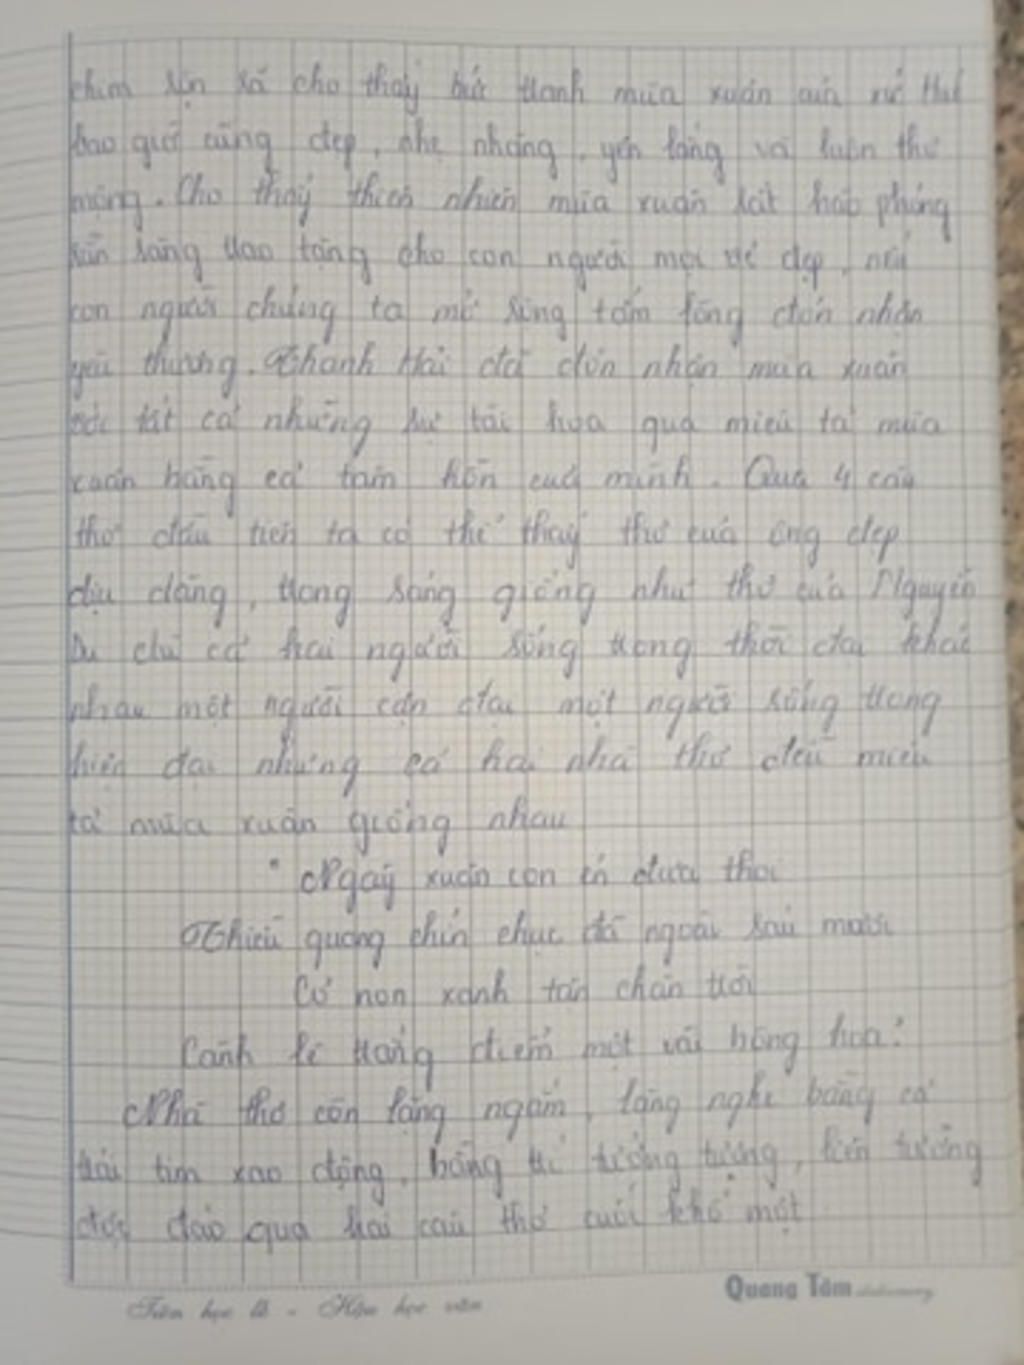 chim rộn rã cho thấy bức tranh mùa xuân của xứ Huế
bao giờ cũng đẹp, nhẹ nhàng, yên lắng và luôn thơ
mộng. Cho thấy thiên nhiên mùa xuân rất hào phóng
sẵn sàng trao tặng cho con người mọi vẻ đẹp, nếu
con người chúng ta mở lòng đón nhận
yêu thương. Thanh Hải đã đón nhận mùa xuân
với tất cả những sự tài hoa qua miêu tả mùa
xuân bằng cả tâm hồn của mình. Qua 4 câu
thơ đầu tiên ta có thể thấy thơ của ông đẹp
dịu dàng, trong sáng giống như thơ của Nguyễn
Du cả hai người sống trong thời đại khác
nhau một người cận đại một người sống trong
hiện đại nhưng cả hai nhà thơ đều miêu
tả mùa xuân giống nhau
"Ngày xuân con én đưa thoi
Thiều quang chín chục đã ngoài sáu mươi
Cỏ non xanh tận chân trời
Cành lê trắng điểm một vài bông hoa"
Nhà thơ còn lặng ngắm, lắng nghe bằng cả
trái tim xao động, bằng trí tưởng tượng, liên tưởng
độc đáo qua hai câu thơ cuối khổ một
Tiên học lễ - Hậu học văn
Quang Tâm